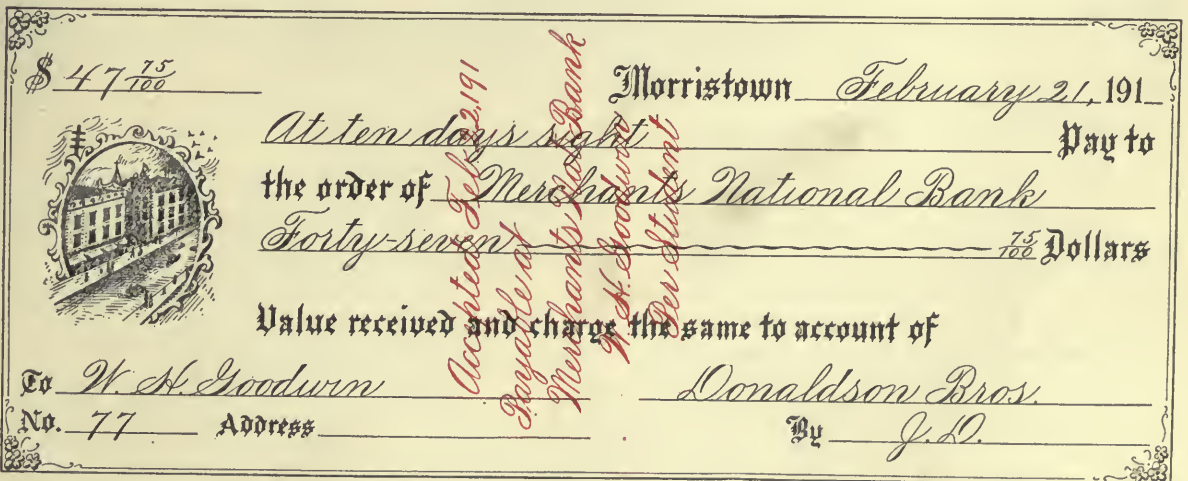 $ 47 75/100
Morristown February 21, 191
At ten days sight Pay to
the order of Merchants National Bank
Forty-seven 75/100 Dollars
Value received and charge the same to account of
To W. H. Goodwin Donaldson Bros.
No. 77 Address By J. D.
Accepted Feb. 22, 191
Payable at
Merchants Nat. Bank
W. H. Goodwin
Per Student